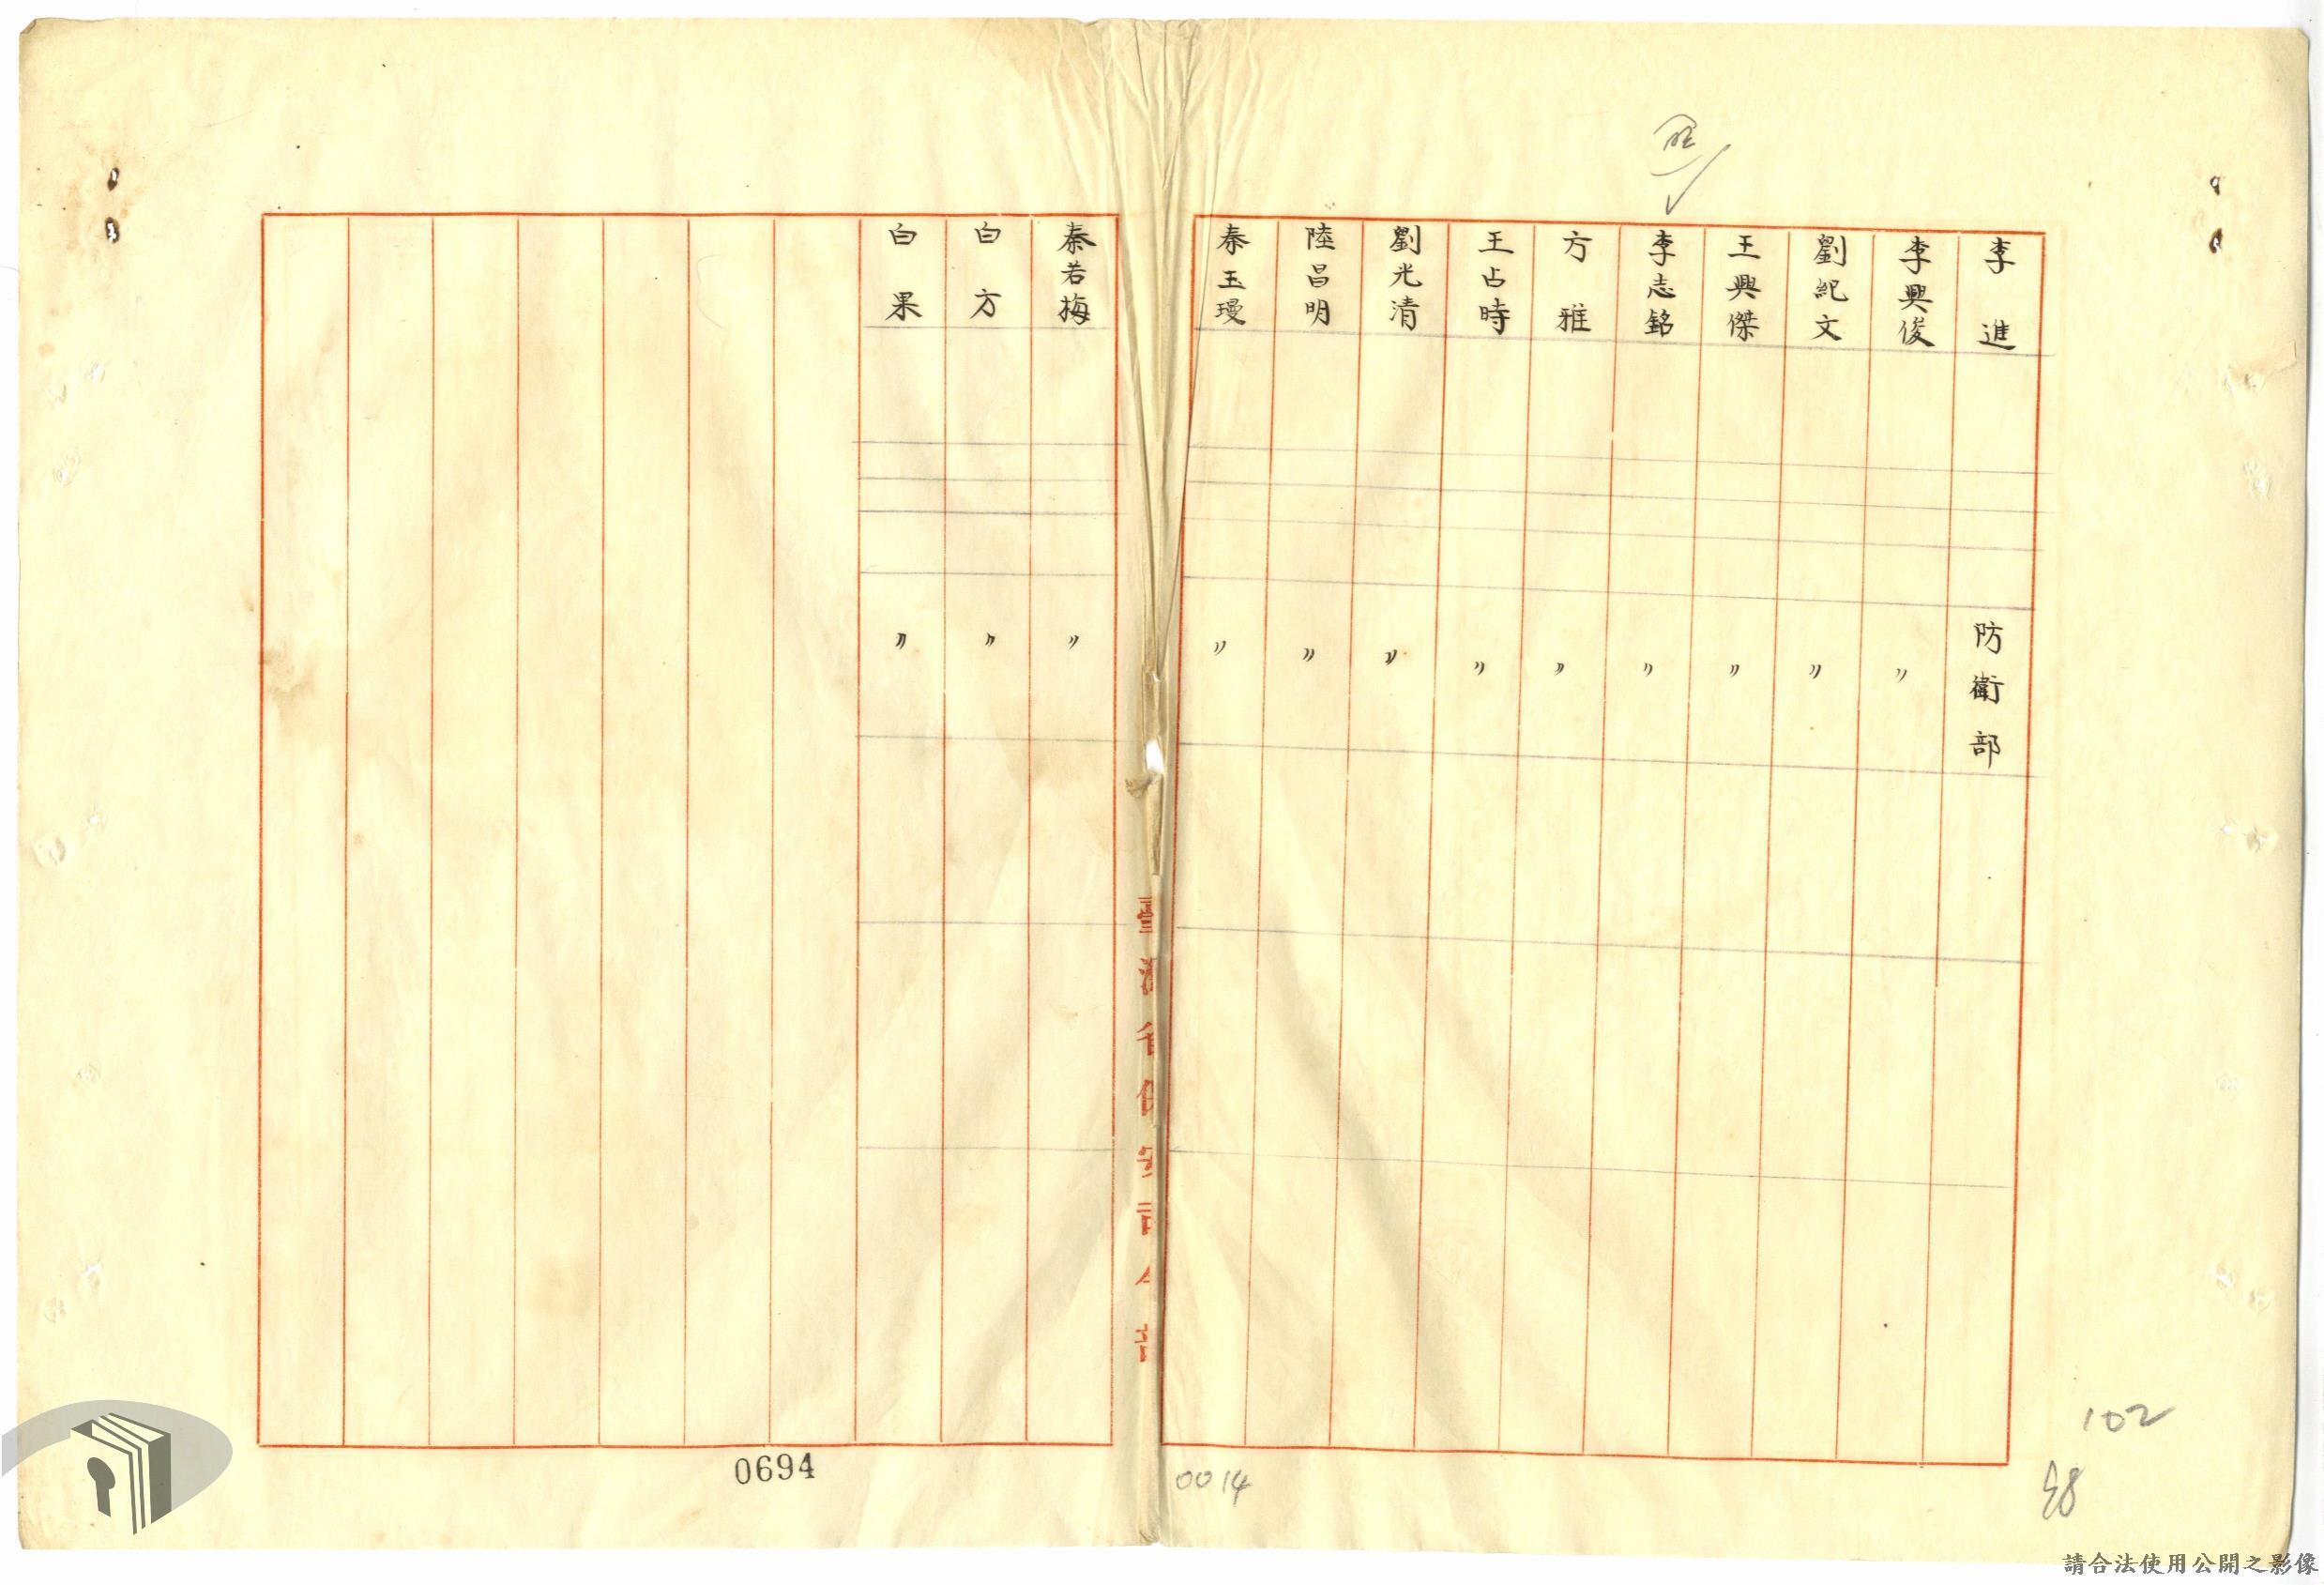 李進 防衛部
李興俊 〃
劉紀文 〃
王興傑 〃
李志銘 〃
方雅 〃
王占時 〃
劉光清 〃
陸昌明 〃
秦玉璦 〃
秦若梅 〃
白方 〃
白果 〃
0694
0014
102
請合法使用公開之影像